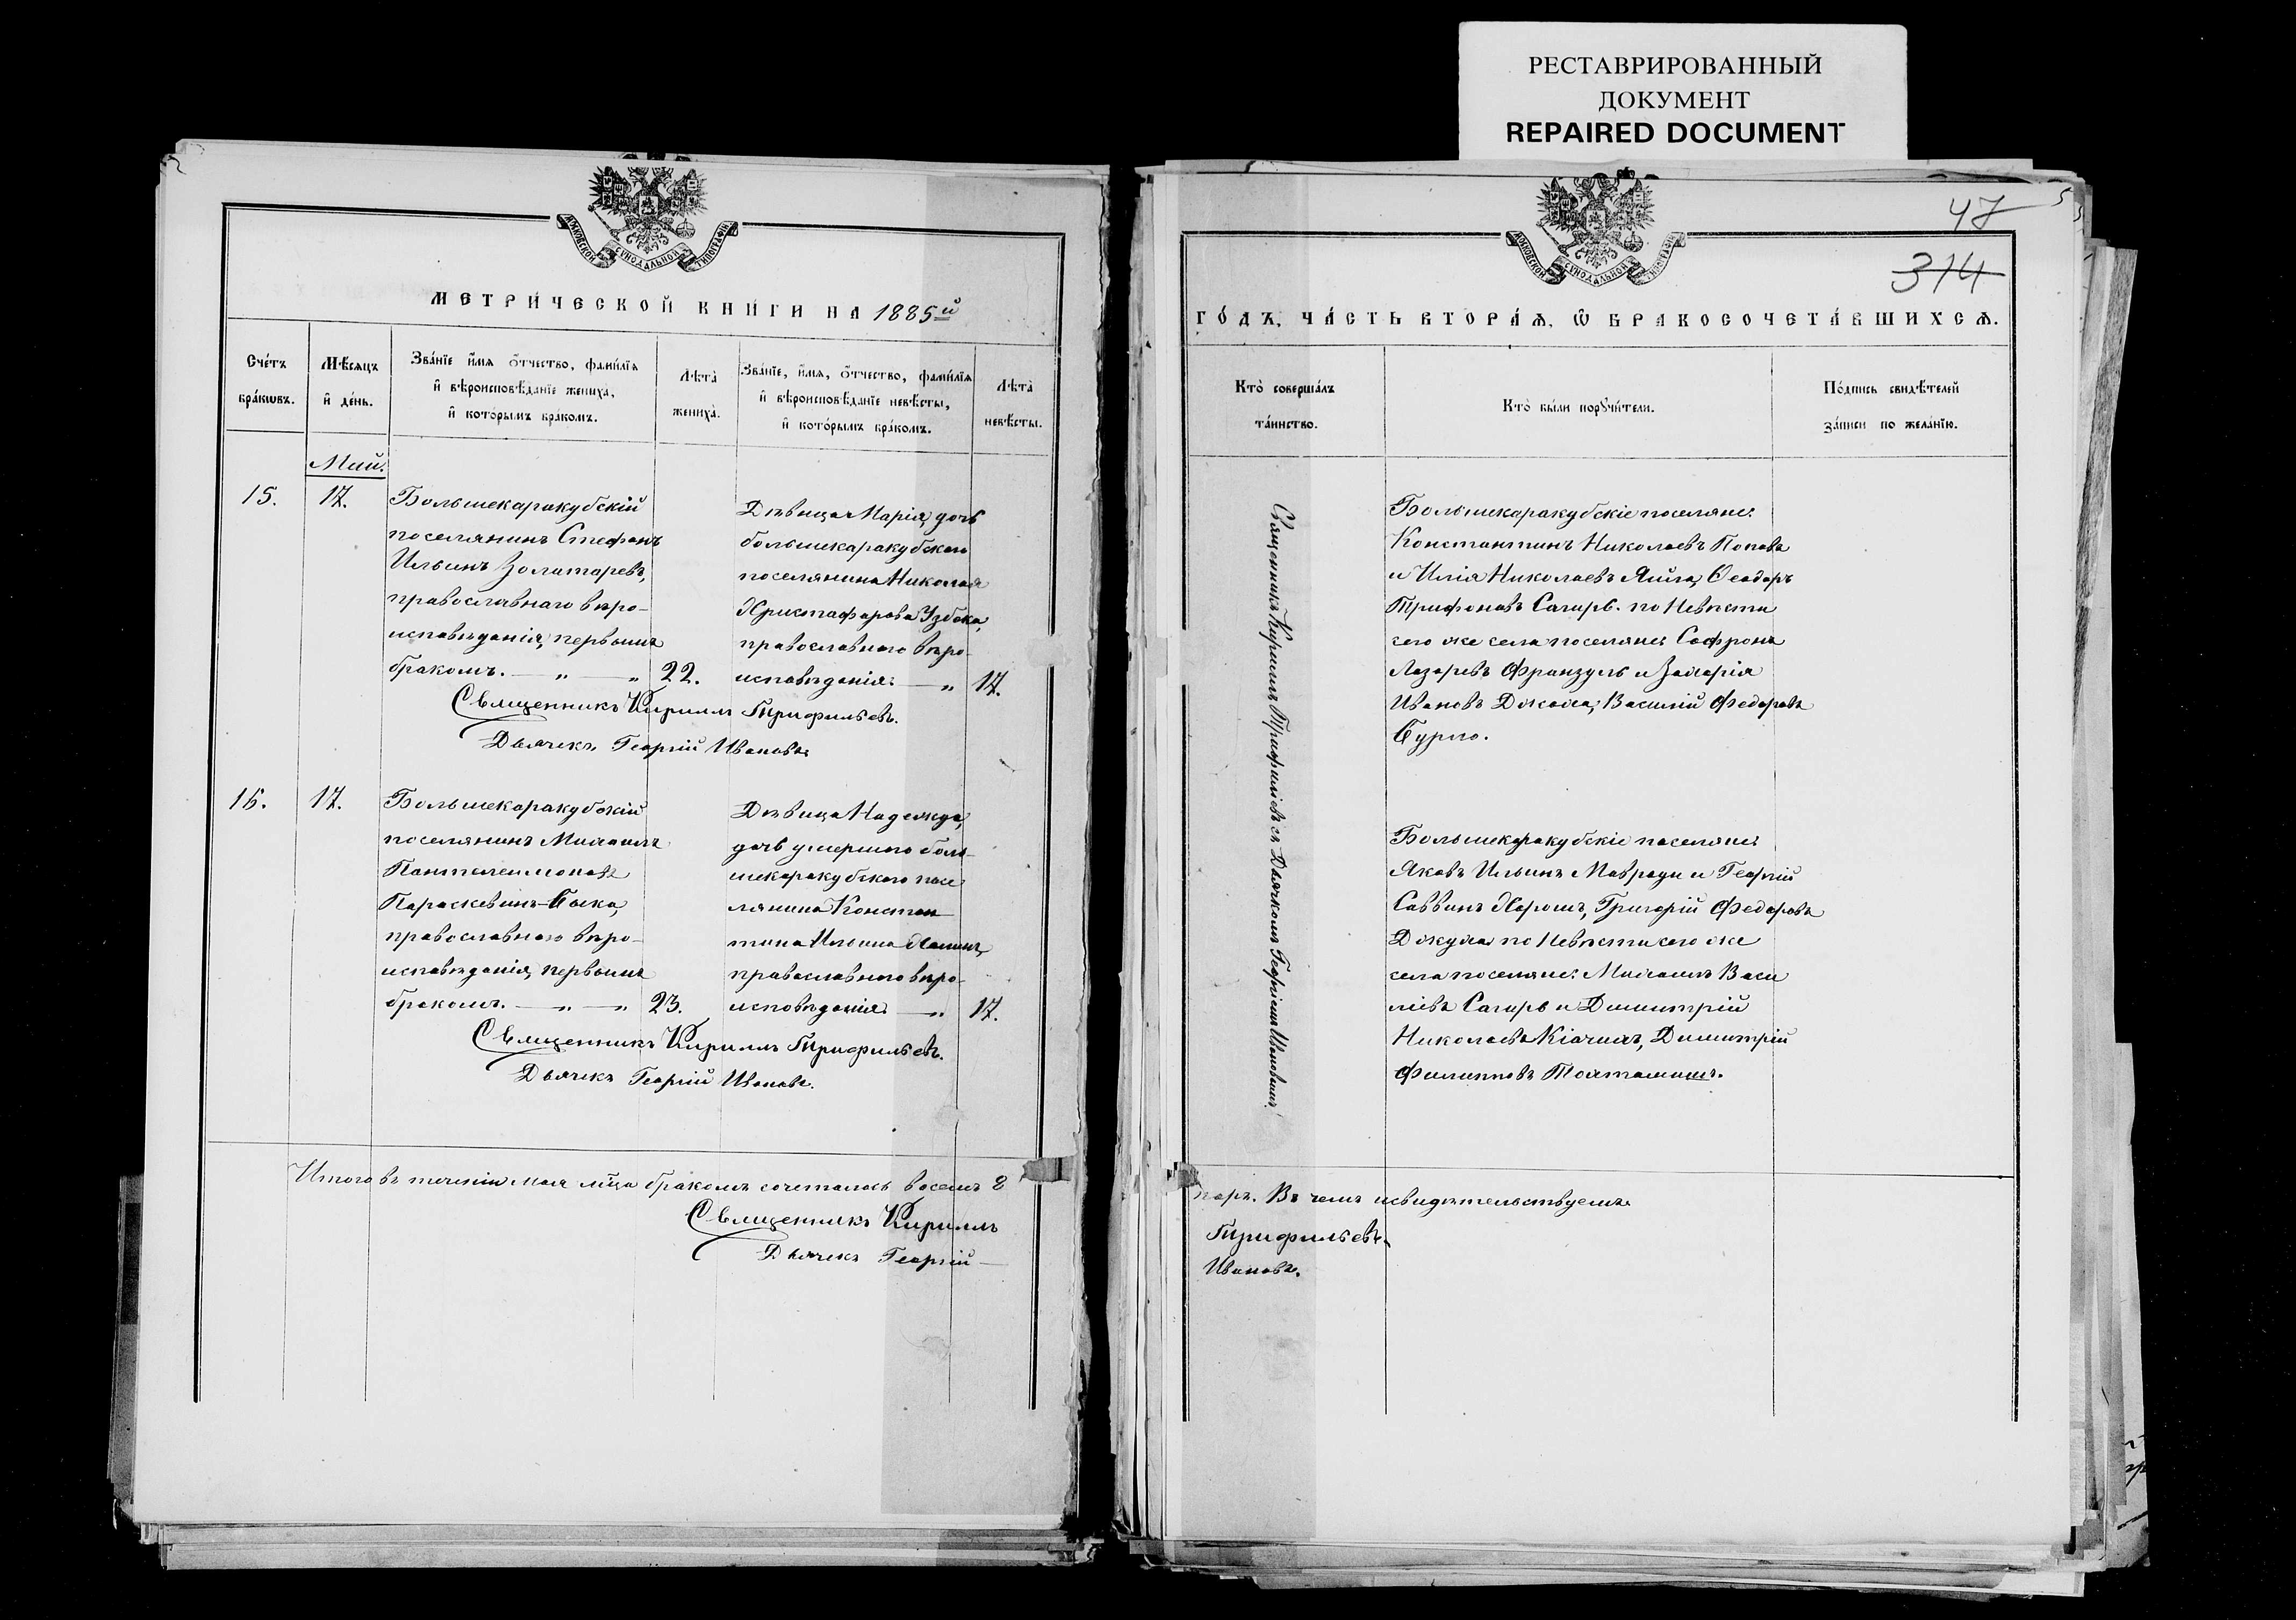 РЕСТАВРИРОВАННЫЙ
ДОКУМЕНТ
REPAIRED DOCUMENT
МОСКОВСКОЙ СѴНОДАЛЬНОЙ ТИПОГРАФІИ
МЕТРИ́ЧЕСКОЙ КНИ́ГИ НА 1885й
Сче́тъ
бра́кѡвъ.
Мѣ́сяцъ
и҆ де́нь.
Зва́нїе и҆́мѧ ѻ҆́тчество, фами́лїѧ
и҆ вѣроисповѣ́данїе жениха̀,
и҆ кото́рымъ бра́комъ.
Лѣта̀
жениха̀.
Зва́нїе, и҆́мѧ, ѻ҆́тчество, фами́лїѧ
и҆ вѣроисповѣ́данїе невѣ́сты,
и҆ кото́рымъ бра́комъ.
Лѣта̀
невѣ́сты.
Май.
15.
17.
Большекаракубскій
поселянинъ Стефанъ
Ильинъ Золатаревъ,
православнаго вѣро-
исповѣданія, первымъ
бракомъ. — „ — „
22.
Дѣвица Марія, дочь
большекаракубскаго
поселянина Николая
Христафорова Узбека,
православнаго вѣро-
исповѣданія. — „
17.
Священникъ Кирилъ Трифильевъ.
Дьячекъ Георгій Ивановъ.
16.
17.
Большекаракубскій
поселянинъ Михаилъ
Пантелеимоновъ
Параскевинъ-
православнаго вѣро-
исповѣданія, первымъ
бракомъ. — „ — „
23.
Дѣвица Надежда,
дочь умершаго боль-
шекаракубскаго посе
лянина Констан
тина Ильина
православнаго вѣро-
исповѣданія. — „
17.
Священникъ Кирилъ Трифильевъ.
Дьячекъ Георгій Ивановъ.
Итого въ теченіи мая м͠ца бракомъ сочеталось восемь 8
Священникъ Кирилъ
Дьячекъ Георгій —
47
314
МОСКОВСКОЙ СѴНОДАЛЬНОЙ ТИПОГРАФІИ
ГО́ДЪ, ЧА́СТЬ ВТОРА́Ѧ, Ѽ БРАКОСОЧЕТА́ВШИХСѦ.
Кто̀ соверша́лъ
та́инство.
Кто̀ бы́ли порꙋчи́тели.
По́дпись свидѣ́телей
за́писи по жела́нїю.
Священникъ Кирилъ Трифиліевъ съ Дьячкомъ Георгіемъ Ивановымъ.
Большекаракубскіе поселяне:
Константинъ Николаевъ Поповъ
и Илія Николаевъ Яйла, Ѳеодоръ
Трифоновъ Сагирь. по Невѣсти
сего же села поселяне: Софронъ
Лазаревъ Франзулъ и Захарія
Ивановъ Джаха, Василій Федоровъ
Большекаракубскіе поселяне:
Яковъ Ильинъ Мавроди и Георгій
Саввинъ Харошъ, Григорій Федоровъ
Джуха по Невѣсти сего же
села поселяне: Михаилъ Васи
ліевъ Сагирь и Димитрій
Николаевъ Димитрій
Филипповъ
паръ. Въ чемъ и свидѣтельствуемъ.
Трифильевъ.
Ивановъ.